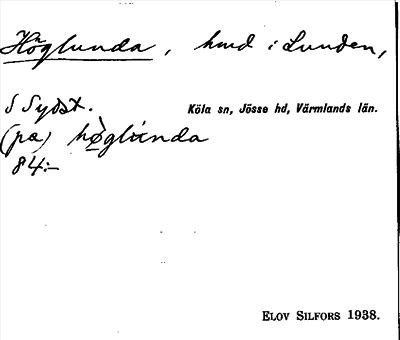 Höglunda, hmd i Lunden,
S Sydst. Köla sn, Jösse hd, Värmlands län.
(pa) hø̀glúnda
84:-
Elov Silfors 1938.